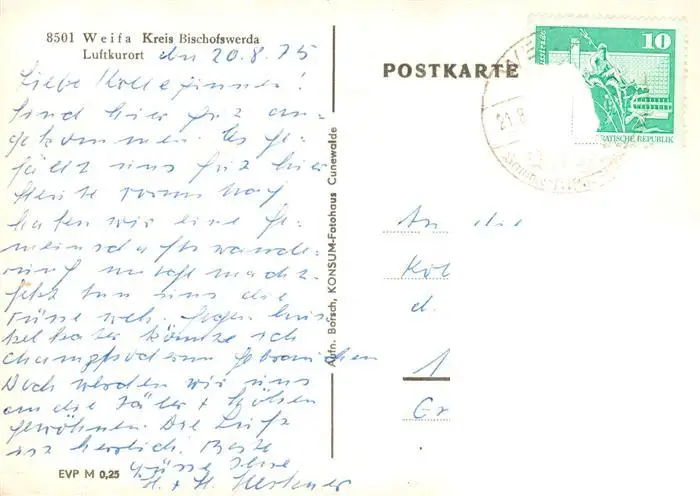 8501 Weifa Kreis Bischofswerda
Luftkurort den 20.8.75
POSTKARTE
10
21.8
RATISCHE REPUBLIK
Liebe Kolleginnen!
Sind hier gut an-
gekommen. Es ge-
fällt uns gut hier
Heute vormittag
haben wir eine Ge-
meinschaftswande-
rung mitgemacht.
Jetzt tun uns die
Füsse weh.
könnte ich
gebrauchen
Doch werden wir uns
an die Täler + Höhen
gewöhnen. Die Luft
ist herrlich. Beste
Grüsse Ihre
H. + H.
An die
Kol
d.
1
Gr
Aufn. Borsch, KONSUM-Fotohaus Cunewalde
EVP M 0,25